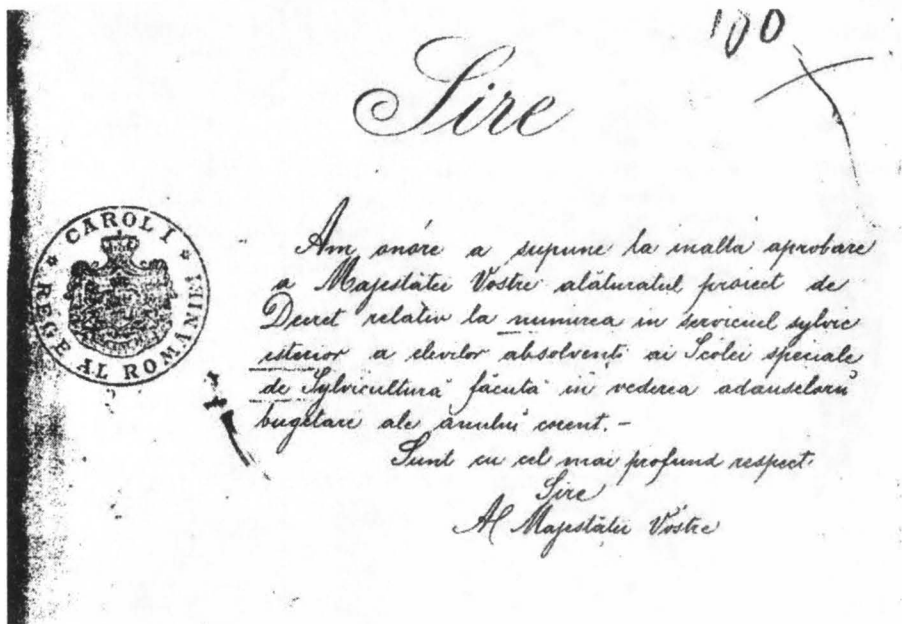 100
Sire
CAROL I
REGE AL ROMANIEI
Am onóre a supune la inalta aprobare
a Majestătei Vostre alăturatul proiect de
Decret relativ la numirea in serviciul sylvic
esterior a elevilor absolvenți ai Scólei speciale
de Sylvicultură făcută in vederea adauselorŭ
bugetare ale anului corent. -
Sunt cu cel mai profund respect.
Sire
Al Majestătei Vostre